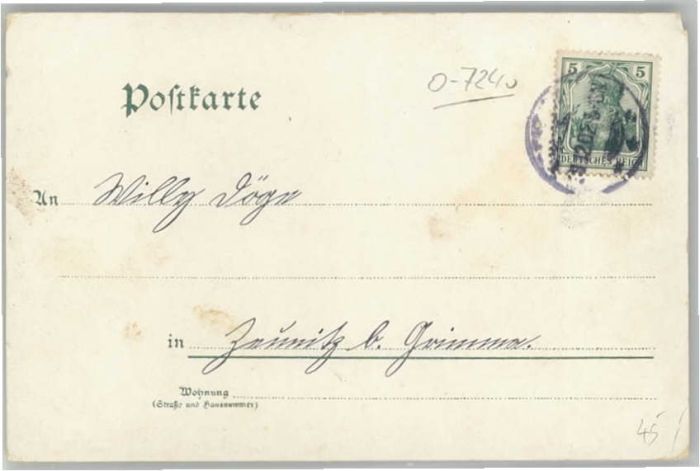 O-7240
5 5
DEUTSCHES REICH
Postkarte
An Willy Döge
in Zeunitz b. Grimma.
Wohnung
(Straße und Hausnummer)
45